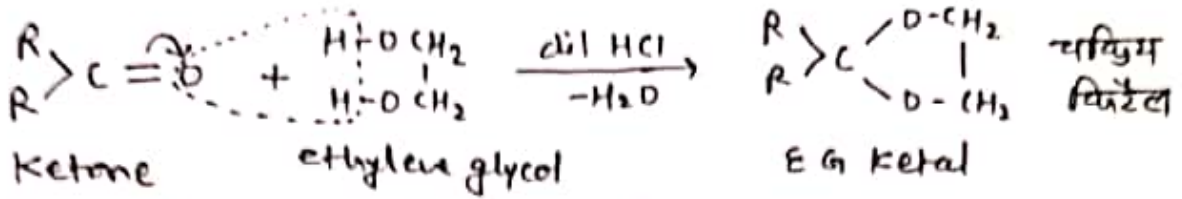 R R > C = O + H-O CH2 H-O CH2 dil HCl -H2O → R R > C O-CH2 O-CH2 चक्रिय किटैल
Ketone ethylene glycol EG Ketal